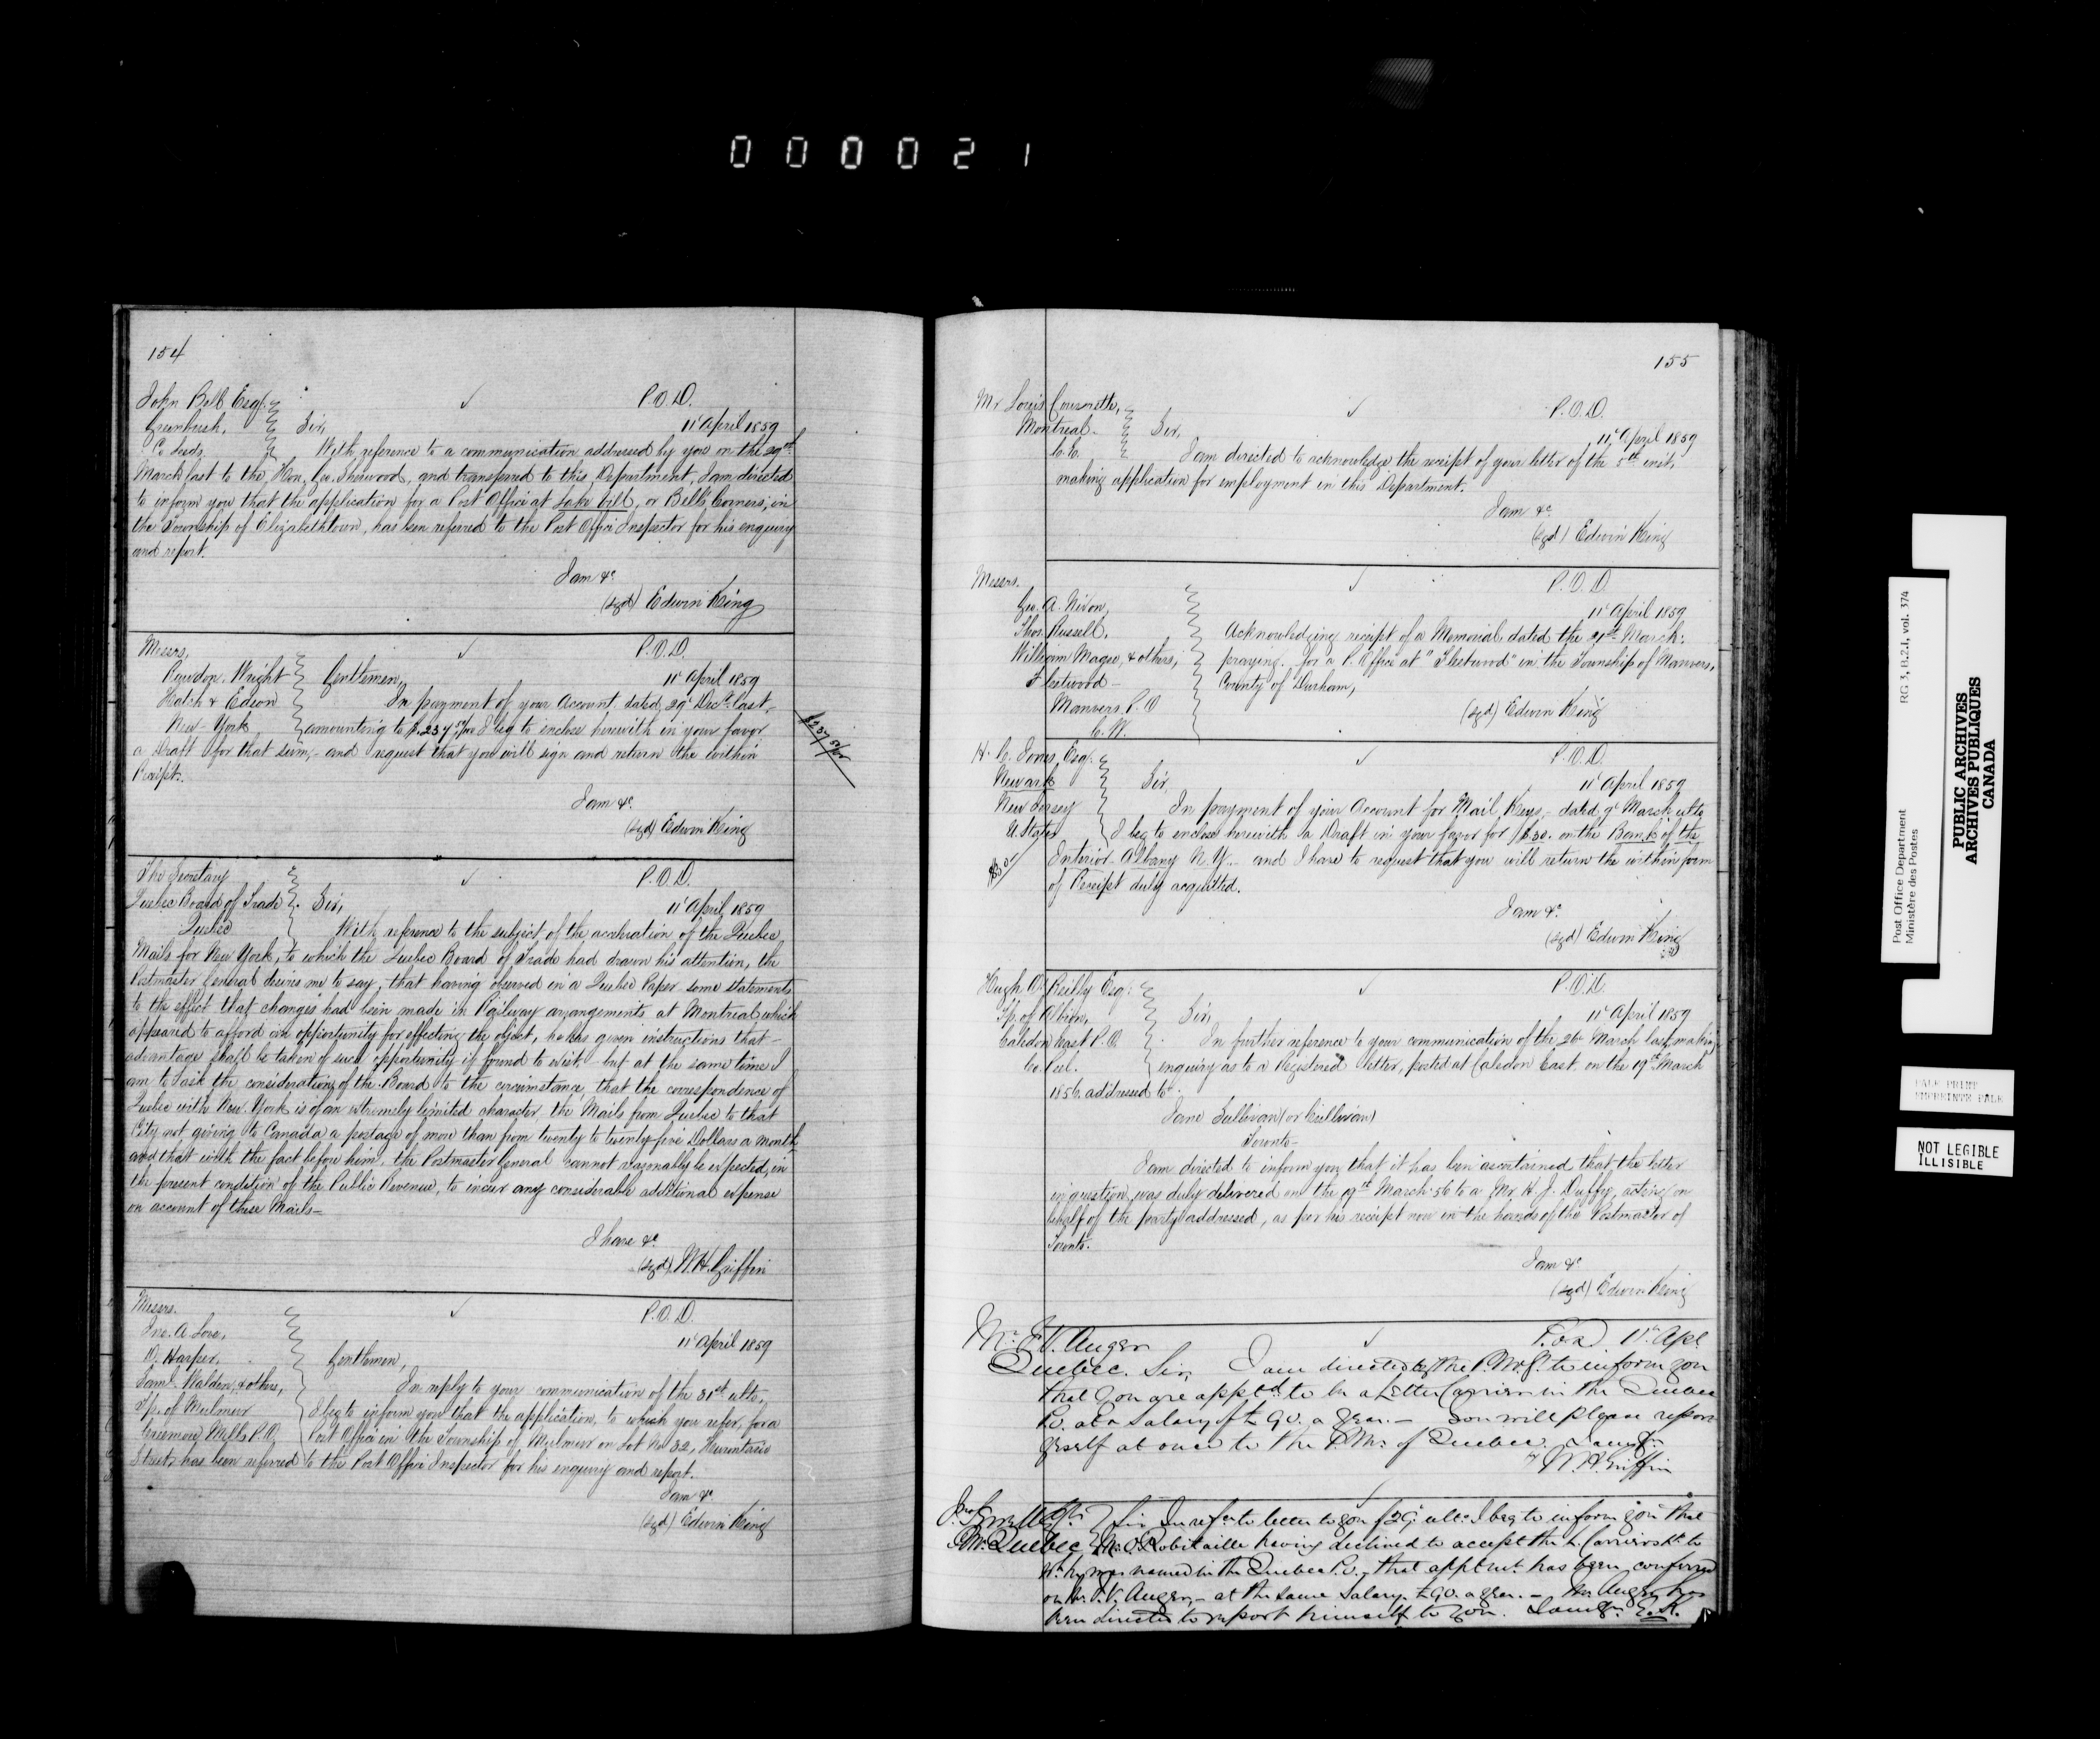 000021
154
John Bell Esqr. P.O.D.
Greenbush, Sir, 11' April 1859
Co Leeds With reference to a communication addressed by you on the 29th
March last to the Hon. Geo. Sherwood, and transferred to this Department, I am directed
to inform you that the application for a Post Office at Lake Vill, or Bells Corners, in
the Township of Elizabethtown, has been referred to the Post Office Inspector for his enquiry
and report.
I am &c.
(sgd) Edwin King
Messrs, P.O.D.
Rawdon, Wright Gentlemen, 11' April 1859
Hatch & Edson In payment of your Account dated 29' Decr. last,
New-York amounting to $.237 50/100 I beg to enclose herewith in your favor
$237 50/100
a Draft for that sum,- and request that you will sign and return the within
Receipt.
I am &c.
(sgd) Edwin King
The Secretary P.O.D.
Quebec Board of Trade Sir, 11' April 1859
Quebec With reference to the subject of the acceleration of the Quebec
Mails for New York, to which the Quebec Board of Trade had drawn his attention, the
Postmaster General desires me to say, that having observed in a Quebec Paper some statements
to the effect that changes had been made in Railway arrangements at Montreal which
appeared to afford an opportunity for effecting the object, he has given instructions that
advantage shall be taken of such opportunity if found to exist,- but at the same time I
am to ask the consideration of the Board to the circumstance, that the correspondence of
Quebec with New York is of an extremely limited character, the Mails from Quebec to that
City not giving to Canada a postage of more than from twenty to twenty-five Dollars a month,
and that with the fact before him, the Postmaster General cannot reasonably be expected, in
the present condition of the Public Revenue, to incur any considerable additional expense
on account of these Mails-
I have &c.
(sgd) W.H. Griffin
Messrs. P.O.D.
Jno. A Love, 11' April 1859
D. Harper, Gentlemen,
Saml. Walden, & others, In reply to your communication of the 31st ulto,
Tp. of Mulmur I beg to inform you that the application, to which you refer, for a
Creemore Mills P.O. Post Office in the Township of Mulmur on Lot No 32, Hurontario
Street, has been referred to the Post Office Inspector for his enquiry and report.
I am &c.
(sgd) Edwin King
155
Mr Louis P.O.D.
Montreal. Sir, 11' April 1859
C.E. I am directed to acknowledge the receipt of your letter of the 5th inst,
making application for employment in this Department.
I am &c
(sgd) Edwin King
Messrs. P.O.D.
Geo. A. Nixon, 11' April 1859
Thos. Russell, Acknowledging receipt of a Memorial dated the March:
William Magee, & others, praying for a P. Office at "Fleetwood" in the Township of Manvers,
Fleetwood- County of Durham,
Manvers P.O (sgd) Edwin King
C.W.
H. C. Jones, Esqr. P.O.D.
Newark Sir, 11' April 1859
New Jersey In payment of your Account for Mail Keys,- dated 9' March ulto
U. States I beg to enclose herewith a Draft in your favor for $.30. on the Bank of the
$30
Interior- Albany N.Y.- and I have to request that you will return the within form
of Receipt duly acquitted.
I am &c.
(sgd) Edwin King
Hugh O'Reilly Esqr: P.O.D.
Tp. of Albion, Sir, 11' April 1859
Caledon East P.O. In further reference to your communication of the 26' March last, making
Co. Peel. enquiry as to a Registered letter, posted at Caledon East on the 19th March
1856 addressed to
Jane Sullivan (or Cullivan)
Toronto-
I am directed to inform you that it has been ascertained that the letter
in question was duly delivered on the March 56 to a Mr. H. J. Duffy, acting on
behalf of the party addressed, as per his receipt now in the hands of the Postmaster of
Toronto.
I am &c
(sgd) Edwin King
Mr. F.V. Auger P.O.D. 11th Apl
Quebec. Sir, I am directed by the P.M.G. to inform you
that you are apptd. to be a Letter Carrier in the Quebec
P.O. at a salary of £90. a year.- You will please report
yrself at once to the P.M. of Quebec. I am &c.
W.H. Griffin
P.M. Quebec Sir, In refce to letter to you of 29' ulto. I beg to inform you that
Mr. Robitaille having declined to accept the L. Carriership to
wh. he was named in the Quebec P.O., that apptmt. has been conferred
on Mr. F.V. Auger,- at the same salary £90. a year.- Mr. Auger has
been directed to report himself to you. I am &c. E.K.
Post Office Department
Ministère des Postes
RG 3, B.2.1, vol. 374
PUBLIC ARCHIVES
ARCHIVES PUBLIQUES
CANADA
PALE PRINT
EMPREINTE PALE
NOT LEGIBLE
ILLISIBLE